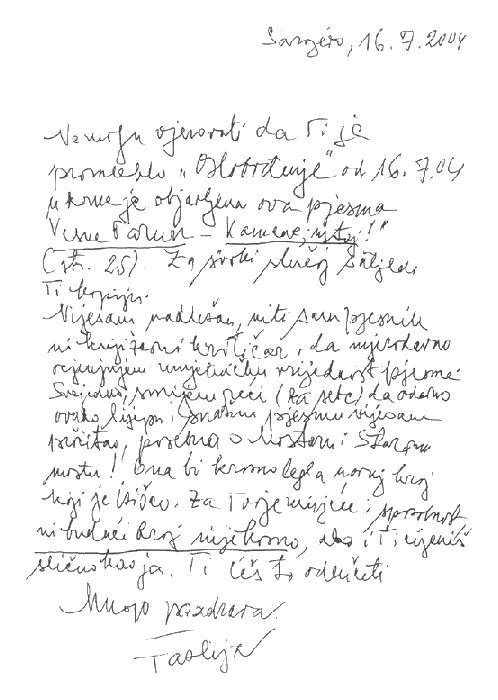 Sarajevo, 16. 7. 2004
Ne mogu vjerovati da Ti je
promaklo „Oslobođenje" od 16. 7. 04
u kome je objavljena ova pjesma
Vesne Parun – Kamene, ustaj!"
(str. 25). Za svaki slučaj šaljem
Ti kopiju.
Nijesam nadležan, niti sam pjesnik
ni književni kritičar, da mjerodavno
ocjenjujem umjetničku vrijednost pjesme.
Svejedno, smijem reći (za sebe) da odavno
ovako lijepu i snažnu pjesmu nijesam
pročitao, posebno o Mostaru i Starom
mostu! Ona bi krasno legla u ovaj broj
koji je. Za Tvoje mišljenje i spremnost
ni budući broj nije kasno, ako i Ti cijeniš
slično kao ja. Ti ćeš to odlučiti
Mnogo pozdrava